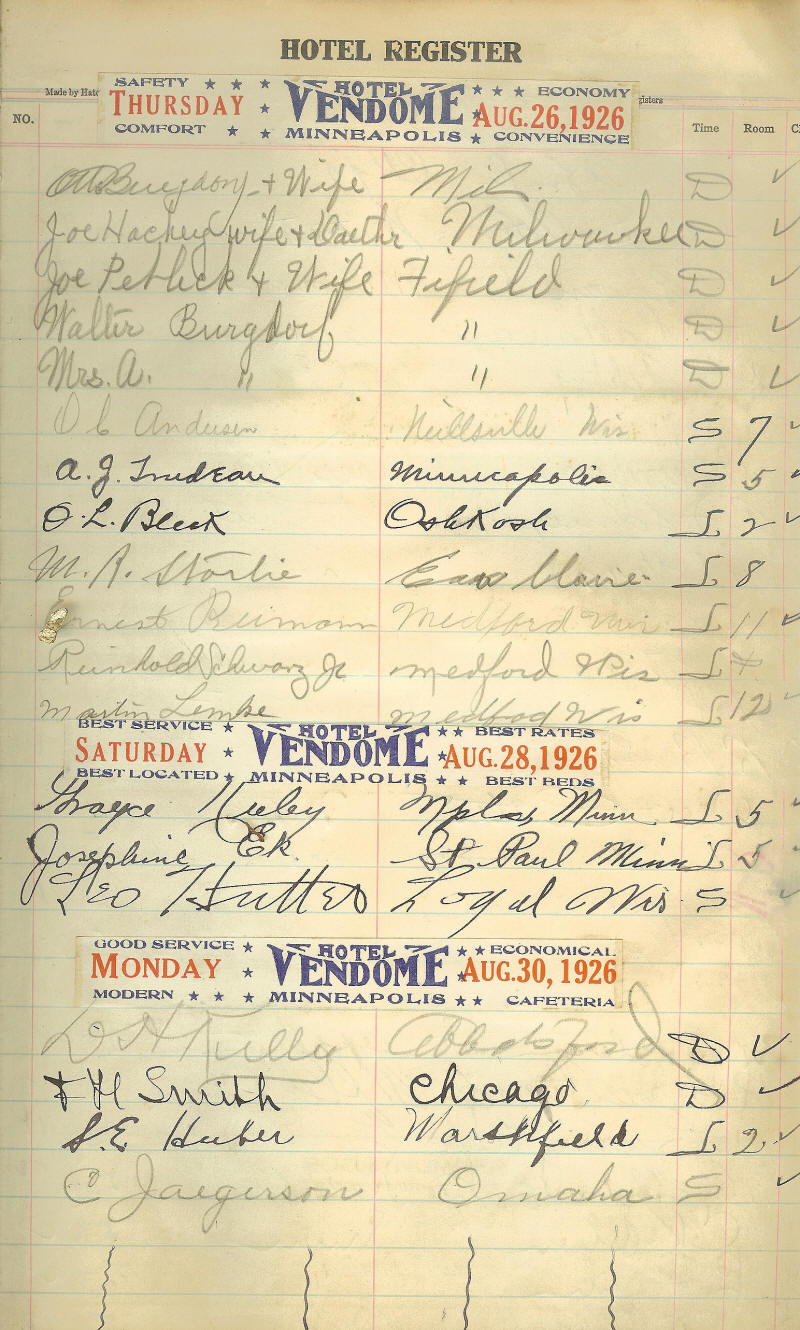 HOTEL REGISTER
Made by Hatc
isters
NO. Time Room
SAFETY HOTEL ECONOMY
THURSDAY VENDOME AUG.26,1926
COMFORT MINNEAPOLIS CONVENIENCE
Otto Burgdorf + Wife Mil. D ✓
Joe Hackey wife + Daethr Milwaukee D ✓
Joe Petlick + Wife Fifield D ✓
Walter Burgdorf " D ✓
Mrs. A. " " D ✓
O C Andersen Neillsville Wis S 7 ✓
A. J. Trudeau Minneapolis S 5 ✓
O. L. Bleck Oshkosh L 2 ✓
M. A. Storlie Eau Claire L 8
Ernest Reimann Medford Wis L 11 ✓
Reinhold Schwarz Jr Medford Wis L 4
Martin Lemke Medfod Wis L 12 ✓
BEST SERVICE HOTEL BEST RATES
SATURDAY VENDOME AUG.28,1926
BEST LOCATED MINNEAPOLIS BEST BEDS
Grayce Mpls Minn L 5 ✓
Josephine Ek. St Paul Minn L 5 ✓
Leo Hutter Loyal Wis S ✓
GOOD SERVICE HOTEL ECONOMICAL
MONDAY VENDOME AUG.30,1926
MODERN MINNEAPOLIS CAFETERIA
D H Kelly Abbotsford D ✓
H Smith Chicago D ✓
S. E Huber Marshfield L 2 ✓
C Jaegerson Omaha S ✓